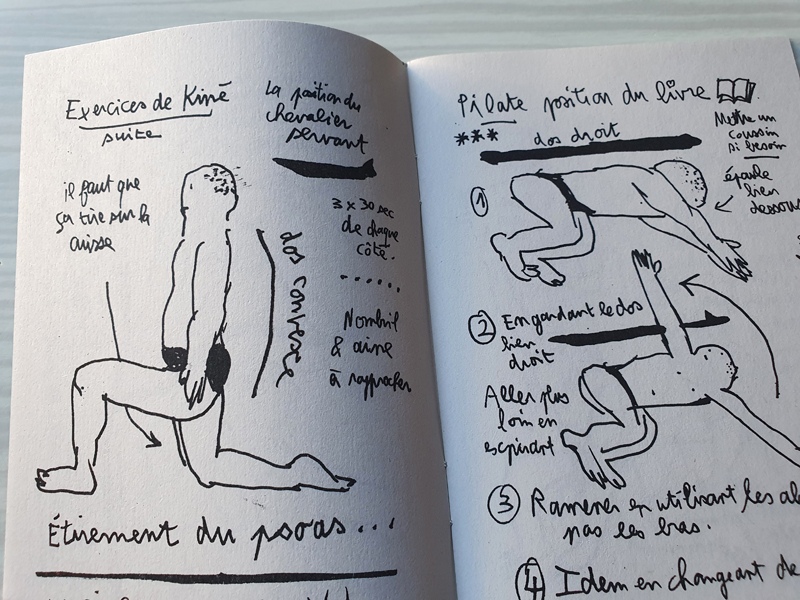 Exercices de Kiné
suite
La position du
chevalier
servant
il faut que
ça tire sur la
cuisse
3 x 30 sec
de chaque
côté.
dos convexe
Nombril
& aine
à rapprocher
Étirement du psoas...
Pilate position du livre
*** dos droit
Mettre un
coussin
si besoin
épaule
bien
dessous
1
2 En gardant le dos
bien
droit
Aller plus
loin en
expirant
3 Ramener en utilisant les ab
pas les bras.
4 Idem en changeant de